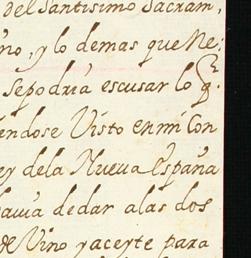 del Santisimo Sacram,
no, y lo demas que Ne:
Sepodria escusar lo q.
endose Visto en mi Con
ey dela Nueva España
avia dedar alas dos
de Vino y aceyte para